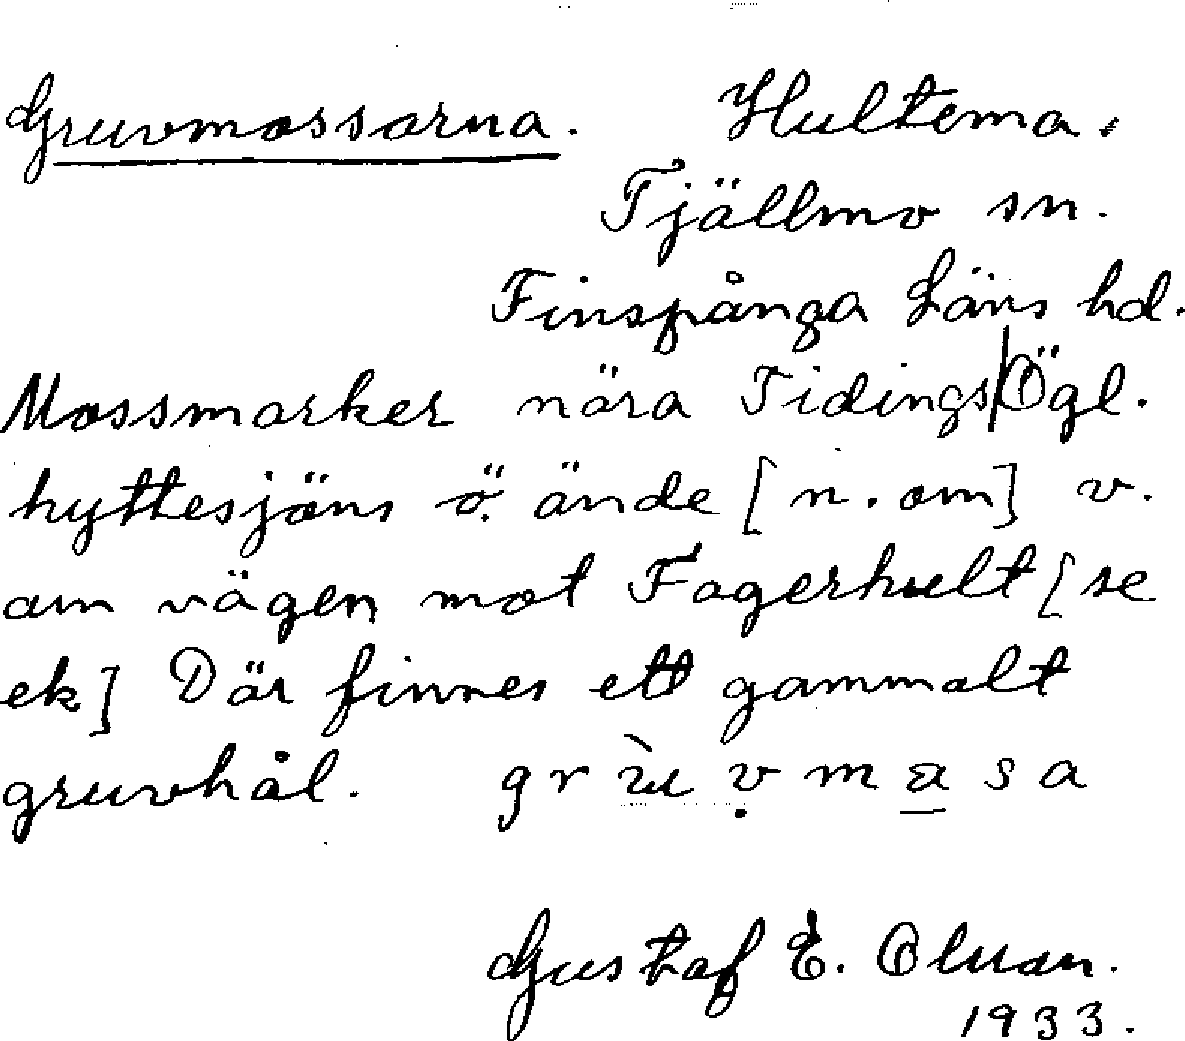 Gruvmossarna. Hultema.
Tjällmo sn.
Finspånga Läns hd.
Mossmarker nära Tidings| Ögl.
hyttesjöns ö. ände [n. om] v.
om vägen mot Fagerhult [se
ek] Där finnes ett gammalt
gruvhål.
Gustaf E. Olsson.
1933.